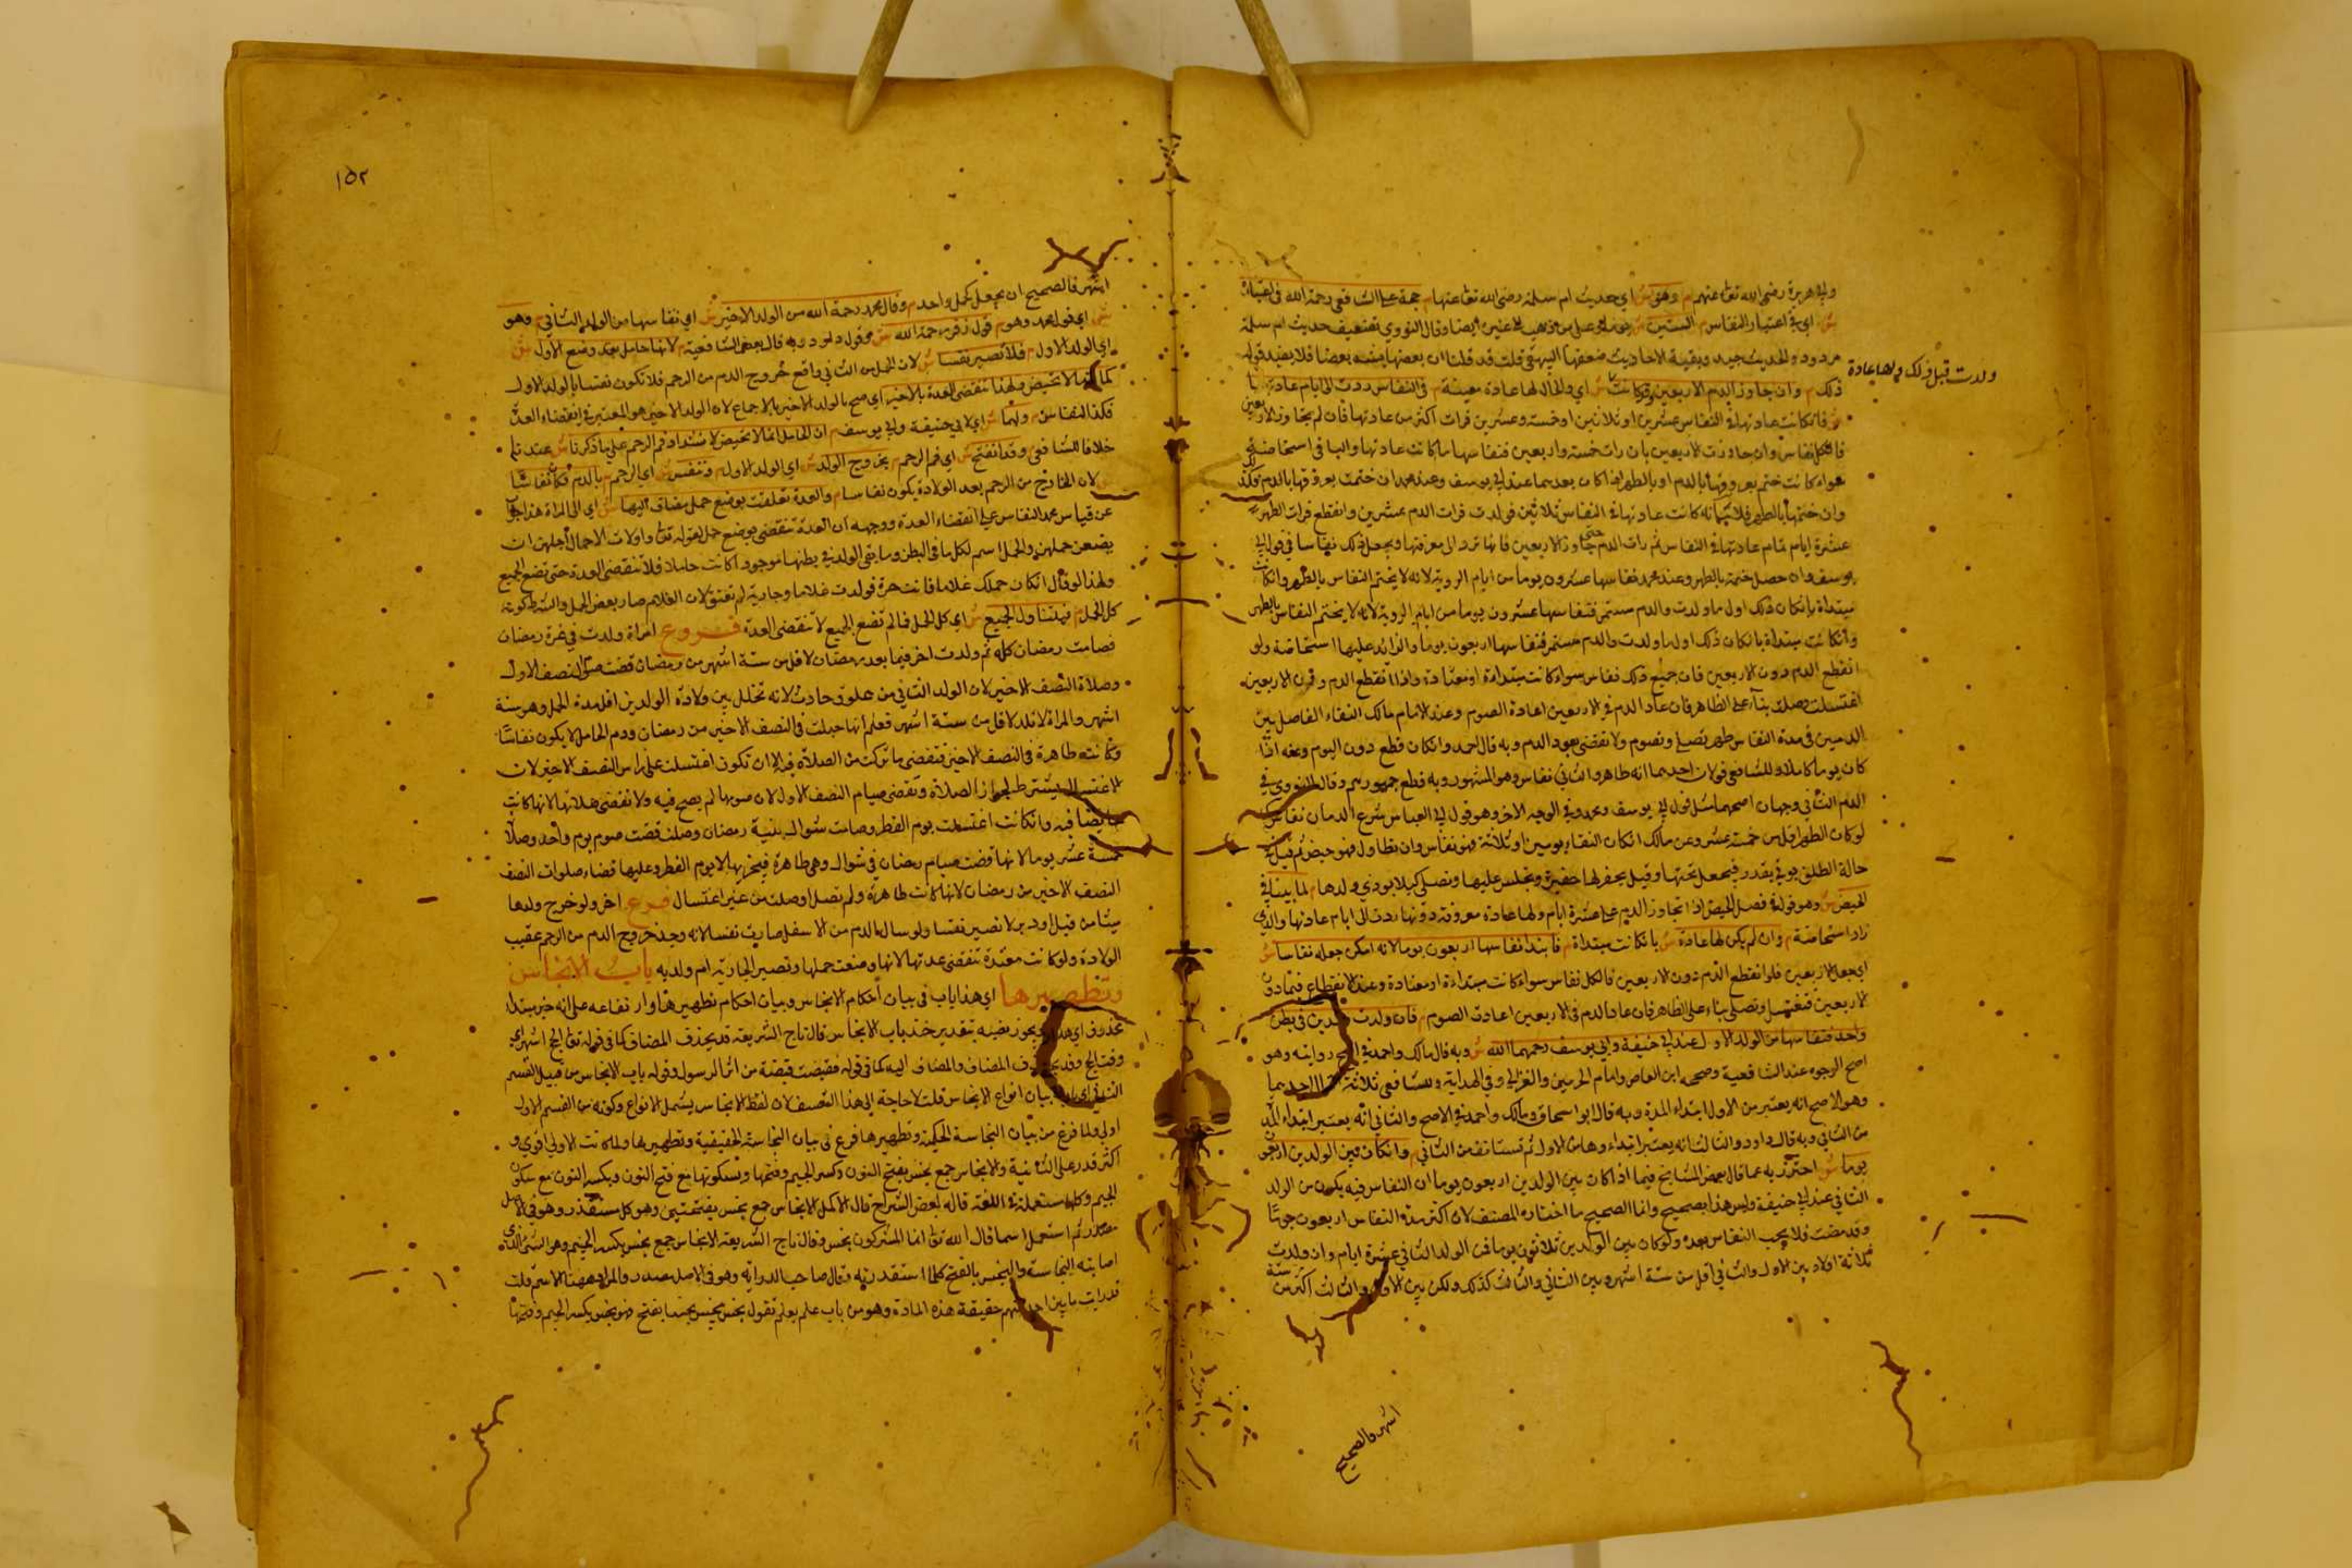 وابي هريرة رضي الله تعالى عنهم م وهو ش اي حديث ام سلمة رضي الله تعالى عنها م حجة على الشافعي رحمه الله في اعتباره
ش اي في اعتبار النفاس م الستين
مردود والحديث جيد وبقية الاحاديث ضعفها البيهقي قلت قد قلنا ان بعضها يشد بعضا فلا يفيد قوله
ذلك م وان جاوز الدم الاربعين وقد كانت ش اي والحال لها عادة معينة م في النفاس ردت الى ايام عادتها
ولدت قبل ذلك ولها عادة
ش فان كانت عادتها في النفاس عشرين او ثلاثين او خمسة وعشرين فرأت اكثر من عادتها فان لم يجاوز الاربعين
فالكل نفاس وان جاوزت الاربعين بان رأت خمسة واربعين فنفاسها ما كانت عادتها والباقي استحاضة
سواء كانت ختم معروفها بالدم او بالطهر اذا كان بعدهما عند ابي يوسف وعند محمد ان ختمت معروفها بالدم فكذلك
وان ختمها بالطهر فلا بيانه كانت عادتها في النفاس ثلاثين فولدت فرأت الدم عشرين وانقطع فرأت الطهر
عشرة ايام تمام عادتها في النفاس ثم رأت الدم حتى جاوز الاربعين فانها ترد الى معرفتها ويجعل ذلك نفاسا في قول ابي
يوسف وان حصل ختمه بالطهر وعند محمد نفاسها عشرون يوما من ايام الروية لانه لا يختم النفاس بالطهر وان كانت
مبتدأة بان كان ذلك اول ما ولدت والدم مستمر فنفاسها عشرون يوما من ايام الروية لانه لا يختم النفاس بالطهر
وان كانت مبتدأة بان كان ذلك اول ما ولدت والدم مستمر فنفاسها اربعون يوما والزائد عليها استحاضة ولو
انقطع الدم دون الاربعين فان جميع ذلك نفاس سواء كانت مبتدأة او معتادة واذا انقطع الدم دون الاربعين
اغتسلت وصلت بناء على الظاهر فان عاد الدم في الاربعين اعادة الصوم وعند الامام مالك النقاء الفاصل بين
الدمين في مدة النفاس طهر تصلي وتصوم ولا تقضي بعود الدم وبه قال احمد وان كان قطع دون اليوم وعنه اذا
كان يوما كاملا وللشافعي قولان احدهما انه طاهر والثاني نفاس وهو المشهور وبه قطع جمهورهم وقال النووي في
الدم الثاني وجهان اصحهما مثل قول ابي يوسف ومحمد وفي الوجه الاخر وهو قول ابي العباس بن سريج الدمان نفاس
لو كان الطهر اقل من خمسة عشر وعن مالك ان كان النقاء يومين او ثلاثة فهو نفاس وان تطاول فهو حيض ثم قيل في
حالة الطلق يوتى بقدر فيجعل تحتها وقيل يحفر لها حفيرة وتجلس عليها وتصلي كيلا يوذي ولدها م لما بينا في
الحيض ش وهو قوله في فصل الحيض اذا تجاوز الدم على عشرة ايام ولها عادة معروفة دونها ردت الى ايام عادتها والذي
زاد استحاضة م وان لم يكن لها عادة ش بان كانت مبتدأة م فابتداء نفاسها اربعون يوما لانه امكن جعله نفاسا ش
اي جعل الاربعين فلو انقطع الدم دون الاربعين فالكل نفاس سواء كانت مبتدأة او معتادة وعند الانقطاع فيما دون
الاربعين فتغتسل وتصلي بناء على الظاهر فان عاد الدم في الاربعين اعادت الصوم م فان ولدت ولدين في بطن
واحد فنفاسها من الولد الاول عند ابي حنيفة وابي يوسف رحمهما الله ش وبه قال مالك واحمد في اصح روايته وهو
اصح الوجوه عند الشافعية وصححه ابن القاص وامام الحرمين والغزالي وفي الهداية وللشافعي ثلاثة احديها
وهو الاصح انه يعتبر من الاول ابتداء المدة وبه قال ابو اسحاق ومالك واحمد في الاصح والثاني انه يعتبر ابتداء المدة
من الثاني وبه قال داود والثالث انه يعتبر ابتداءها من الاول ثم تستانف من الثاني م وان كان بين الولدين اربعون
يوما ش احترز به عما قال بعض المشايخ فيما اذا كان بين الولدين اربعون يوما ان النفاس فيه يكون من الولد
الثاني عند ابي حنيفة وليس هذا بصحيح وانما الصحيح ما اختاره المصنف لان اكثر مدة النفاس اربعون يوما
وقد مضت فلا يجب النفاس بعده ولو كان بين الولدين ثلاثون يوما فمن الولد الثاني عشرة ايام وان ولدت
ثلاثة اولاد بين الاول والثاني اقل من ستة اشهر وبين الثاني والثالث كذلك ولكن بين الاول والثالث اكثر من ستة
اشهر فالصحيح
١٥٢
اشهر فالصحيح ان يجعل كحمل واحد م وقال محمد رحمه الله من الولد الاخير ش اي نفاسها من الولد الثاني م وهو
ش اي قول محمد وهو م قول زفر رحمه الله ش وقول داود وبه قال بعض الشافعية م لانها حامل بعد وضع الاول ش
اي الولد الاول م فلا تصير نفساء ش لان الحمل من الثاني واقع خروج الدم من الرحم فلا تكون نفساء بالولد الاول
كما انها لا تحيض ولهذا تنقضي العدة بالاخير اي صح بالولد الاخير بالاجماع لان الولد الاخير هو المعتبر في انقضاء العدة
فكذا النفاس م ولهما ش اي لابي حنيفة وابي يوسف م ان الحامل انما لا تحيض لانسداد فم الرحم على ما ذكرنا ش عندنا
خلافا للشافعي م وقد انفتح ش اي فم الرحم م بخروج الولد ش اي الولد الاول م وتنفس ش اي الرحم م بالدم فكان نفاسا
لان الخارج من الرحم بعد الولادة يكون نفاسا م والعدة تعلقت بوضع حمل مضاف اليها ش اي الى المراة هذا جواب
عن قياس محمد النفاس على انقضاء العدة ووجهه ان العدة تنقضي بوضع حمل لقوله تعالى واولات الاحمال اجلهن ان
يضعن حملهن والحمل اسم لكل ما في البطن وما بقي الولد في بطنها موجودا كانت حاملا فلا تنقضي العدة حتى تضع الجميع
ولهذا لو قال ان كان حملك غلاما فانت حرة فولدت غلاما وجارية لم تعتق لان الغلام صار بعض الحمل والشرط كونه
كل الحمل م فيتناول الجميع ش اي كل الحمل فما لم تضع الجميع لا تنقضي العدة فروع امراة ولدت في غرة رمضان
فصامت رمضان كله ثم ولدت اخر فيما بعد رمضان لاقل من ستة اشهر من رمضان قضت صوم النصف الاول
وصلاة النصف الاخير لان الولد الثاني من علوق حادث لانه تخلل بين ولادة الولدين اقل مدة الحمل وهو ستة
اشهر والمراة لا تلد لاقل من ستة اشهر فعلم انها حبلت في النصف الاخير من رمضان ودم الحامل لا يكون نفاسا
وكانت طاهرة في النصف الاخير فتقضي ما تركت من الصلاة فيه الا ان تكون اغتسلت على راس النصف الاخير لان
الاغتسال يشترط لجواز الصلاة وتقضي صيام النصف الاول لان صومها لم يصح فيه ولا تقضي صلاتها لانها كانت
حايضا فيه وان كانت اغتسلت يوم الفطر وصامت شوال بنية رمضان وصلت قضت صوم يوم واحد وصلاة
خمسة عشر يوما لانها قضت صيام رمضان في شوال وهي طاهرة فيجزيها الا يوم الفطر وعليها قضاء صلوات النصف
النصف الاخير من رمضان لانها كانت طاهرة ولم تصل او صلت من غير اغتسال فرع اخر ولو خرج ولدها
ميتا من قبل او دبر لا تصير نفساء ولو سال الدم من الاسفل صارت نفساء لانه وجد خروج الدم من الرحم عقيب
الولادة ولو كانت معتدة تنقضي عدتها لانها وضعت حملها وتصير الجارية ام ولد به باب الانجاس
وتطهيرها اي هذا باب في بيان احكام الانجاس وبيان احكام تطهيرها وارتفاعه على انه خبر مبتداء
محذوف اي هذا ويجوز نصبه بتقدير خذ باب الانجاس قال تاج الشريعة قد يحذف المضاف كما في قوله تعالى الحج اشهر اي
وقت الحج وقد يحذف المضاف والمضاف اليه كما في قوله فقبضت قبضة من اثر الرسول وقوله باب الانجاس من قبيل القسم
الثاني اي باب بيان انواع الانجاس قلت لا حاجة الى هذا التعسف لان لفظ الانجاس يشمل الانواع وكونه من القسم الاول
اولى ولما فرغ من بيان النجاسة الحكمية وتطهيرها فرع في بيان النجاسة الحقيقية وتطهيرها ولما كانت الاولى اقوى و
اكثر قدر على الثانية والانجاس جمع نجس بفتح النون وكسر الجيم وفتحها وسكونها مع فتح النون وبكسر النون مع سكون
الجيم وكلها مستعملة في اللغة قاله بعض الشراح قال الاكمل الانجاس جمع نجس بفتحتين وهو كل مستقذر وهو في الاصل
مصدر ثم استعمل اسما قال الله تعالى انما المشركون نجس وقال تاج الشريعة الانجاس جمع نجس بكسر الجيم وهو الشيء الذي
اصابته النجاسة والنجس بالفتح كلما استقذرته وقال صاحب الدراية وهو في الاصل مصدر والمراد ههنا الاسم قلت
قد رايت ما بين احد منهم حقيقة هذه المادة وهو من باب علم يعلم تقول نجس ينجس نجسا بفتح